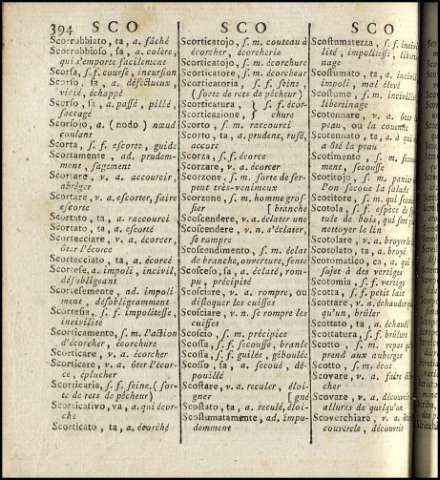 394 SCO SCO SCO
Scorrubbiato, ta, a. fâché
Scorrubbioso, sa, a. colère,
qui s'emporte facilement
Scorsa, s. f. course, incursion
Scorso, sa, a. défectueux,
vicié, échappé
Scorso, sa, a. passé, pillé,
saccagé
Scorsojo, a. (nodo) nœud
coulant
Scorta, s. f. escorte, guide
Scortamente, ad. prudem-
ment, sagement
Scortare, v. a. accourcir,
abréger
Scortare, v. a. escorter, faire
escorte
Scortato, ta, a. raccourci
Scortato, ta, a. escorté
Scortecciare, v. a. écorcer,
ôter l'écorce
Scortecciato, ta, a. écorcé
Scortese, a. impoli, incivil,
désobligeant
Scortesemente, ad. impoli-
ment, désobligeamment
Scortesia, s. f. impolitesse,
incivilité
Scorticamento, s. m. l'action
d'écorcher, écorchure
Scorticare, v. a. écorcher
Scorticare, v. a. ôter l'écor-
ce, éplucher
Scorticaria, s. f. seine, (sor-
te de rets de pêcheur)
Scorticativo, va, a. qui écor-
che
Scorticato, ta, a. écorché
Scorticatojo, s. m. couteau à
écorcher, écorcherie
Scorticatojo, s. m. écorchure
Scorticatore, s. m. écorcheur
Scorticatoria, s. f. seine,
(sorte de rets de pêcheur)
Scorticatura, } s. f. écor-
Scorticazione, } chure
Scorto, s. m. raccourci
Scorto, ta, a. prudent, rusé,
accort
Scorza, s. f. écorce
Scorzare, v. a. écorcer
Scorzone, s. m. sorte de ser-
pent très-venimeux
Scorzone, s. m. homme gros-
sier [branche
Scoscendere, v. a. éclater une
Scoscendere, v. n. s'éclater,
se rompre
Scoscendimento, s. m. éclat
de branche, ouverture, fente
Scosceso, sa, a. éclaté, rom-
pu, précipité
Scosciare, v. a. rompre, ou
disloquer les cuisses
Scosciare, v. n. se rompre les
cuisses
Scoscio, s. m. précipice
Scossa, s. f. secousse, branle
Scossa, s. f. guilée, giboulée
Scosso, sa, a. secoué, dé-
pouillé
Scostare, v. a. reculer, éloi-
gner [gné
Scostato, ta, a. reculé, éloi-
Scostumatamente, ad. impu-
demment
Scostumatezza, s. f. incivi
lité, impolitesse, liberti-
nage
Scostumato, ta, a. incivil
impoli, mal élevé
Scostume, s. m. incivilité
libertinage
Scotennare, v. a. ôter la
peau, ou la couenne
Scotennato, ta, a. à qui
a ôté la peau
Scotimento, s. m.
ment, secousse
Scotitojo, s. m. panier
l'on secoue la salade
Scotitore, s. m. qui
Scotola, s. f. espèce de
tule de bois, qui sert
nettoyer le lin
Scotolare, v. a. broyer le
Scotolato, ta, a. broyé
Scotomatico, ca, a. qui
sujet à des vertiges
Scotomia, s. f. vertige
Scotta, s. f. petit lait
Scottare, v. a. échauder
qu'un, brûler
Scottato, ta, a. échaudé
Scottatura, s. f. brûlure
Scotto, s. m. repas
prend aux auberges
Scotto, s. m. écot
Scovare, v. a. faire
cher
Scovare, v. a. découvrir
allures de quelqu'un
Scoverchiare, v. a.
couvercle, découvrir